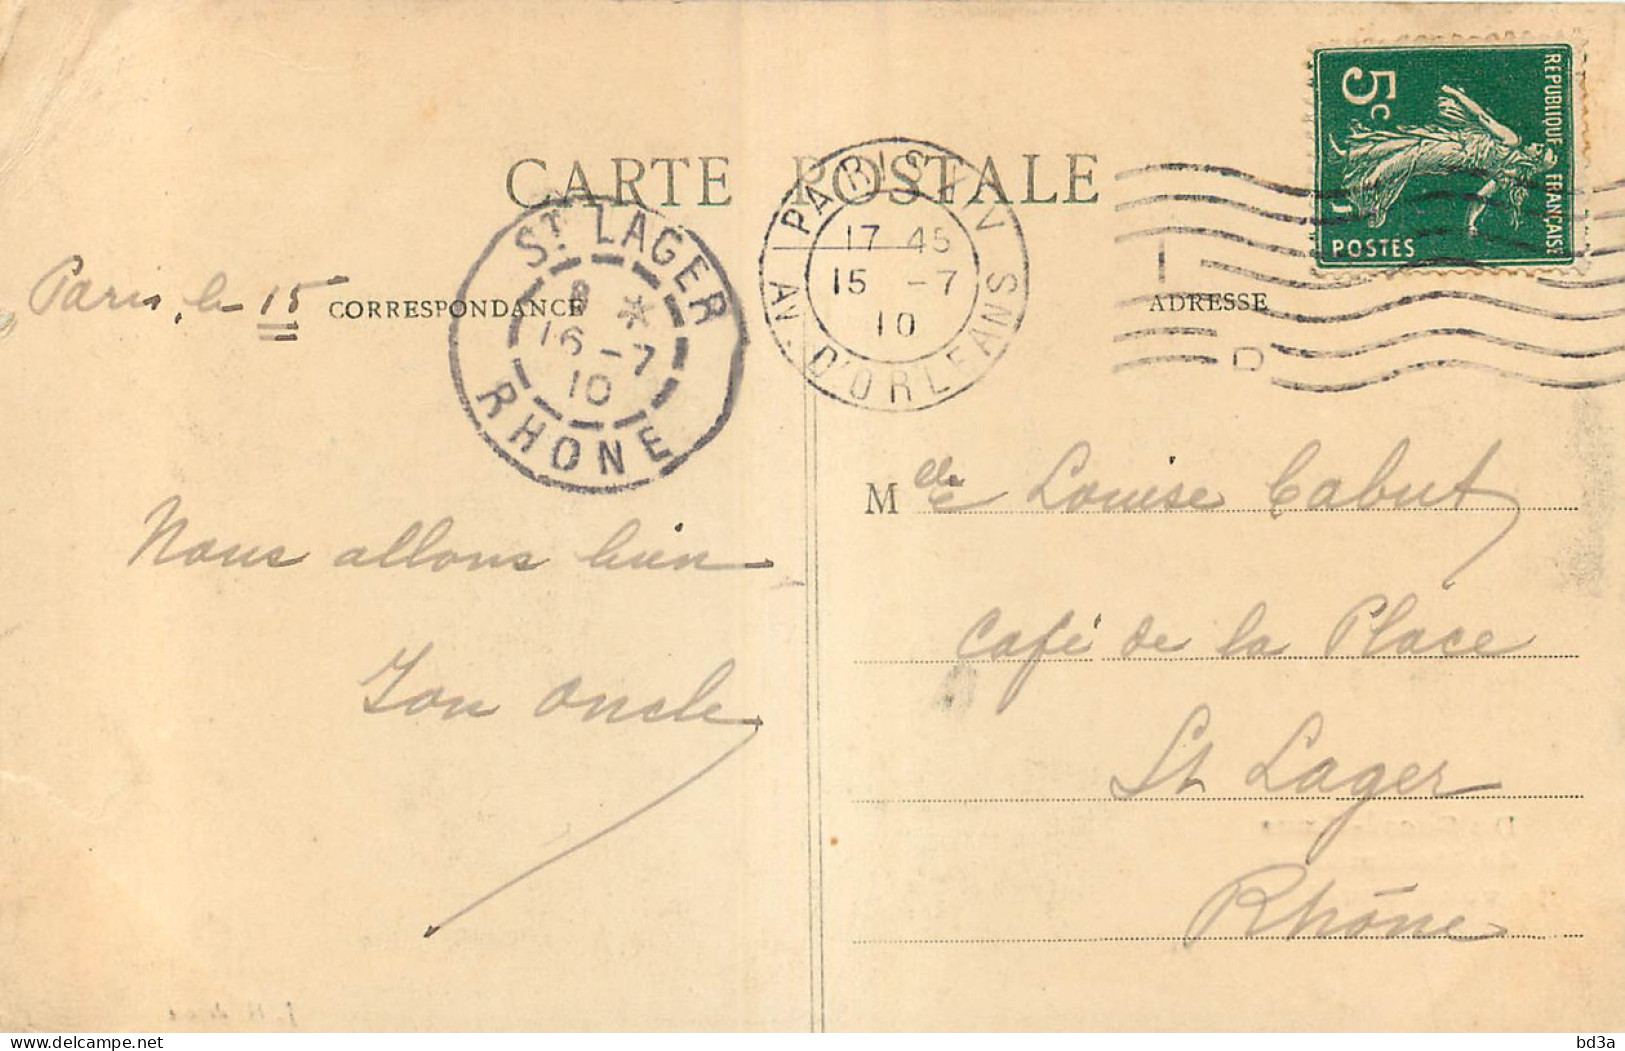 CARTE POSTALE
REPUBLIQUE FRANÇAISE
5c
POSTES
PARIS XIV
17 45
15 -7
10
AV. D'ORLEANS
ST LAGER
8 *
16 -7
10
RHONE
Paris, le 15
CORRESPONDANCE
ADRESSE
Nous allons bien
Ton oncle
Melle Louise Cabut
Café de la Place
St Lager
Rhône
bd3a